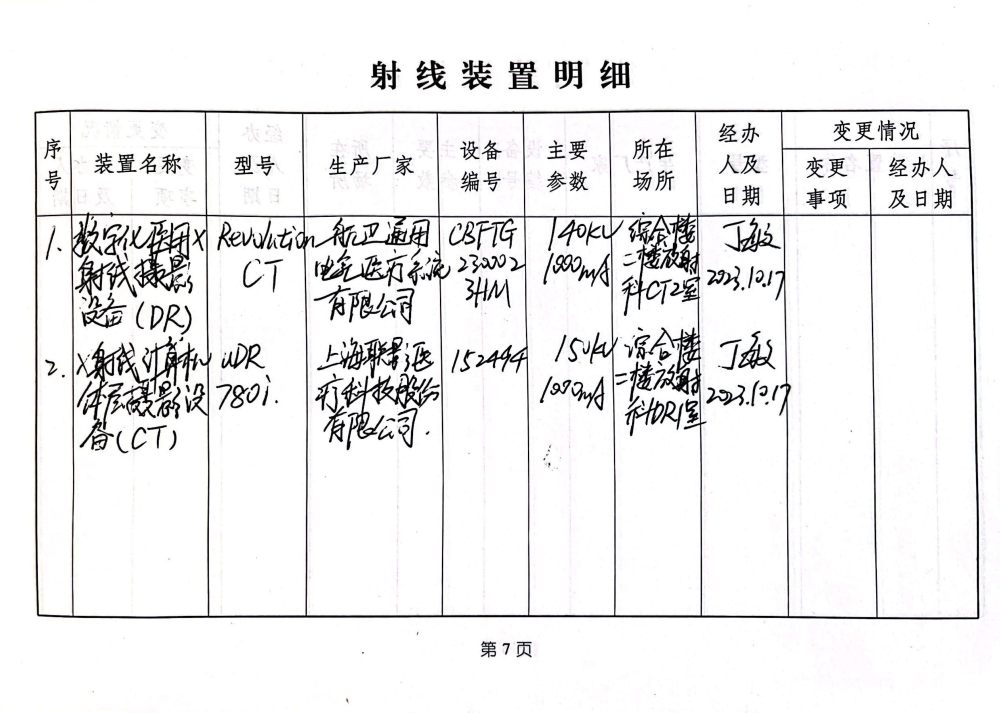 射线装置明细
序号 装置名称 型号 生产厂家 设备编号 主要参数 所在场所 经办人及日期 变更情况
变更事项 经办人及日期
1. 数字化医用X Revolution 航卫通用 CBFTG 140kV 综合楼 丁敏
射线摄影 CT 电气医疗系统 230002 1000mA 二楼放射 2023.10.17
设备(DR) 有限公司 3HM 科CT2室
2. X射线计算机 uDR 上海联影医 152494 150kV 综合楼 丁敏
体层摄影设 780i. 疗科技股份 1000mA 二楼放射 2023.10.17
备(CT) 有限公司. 科DR1室
第7页